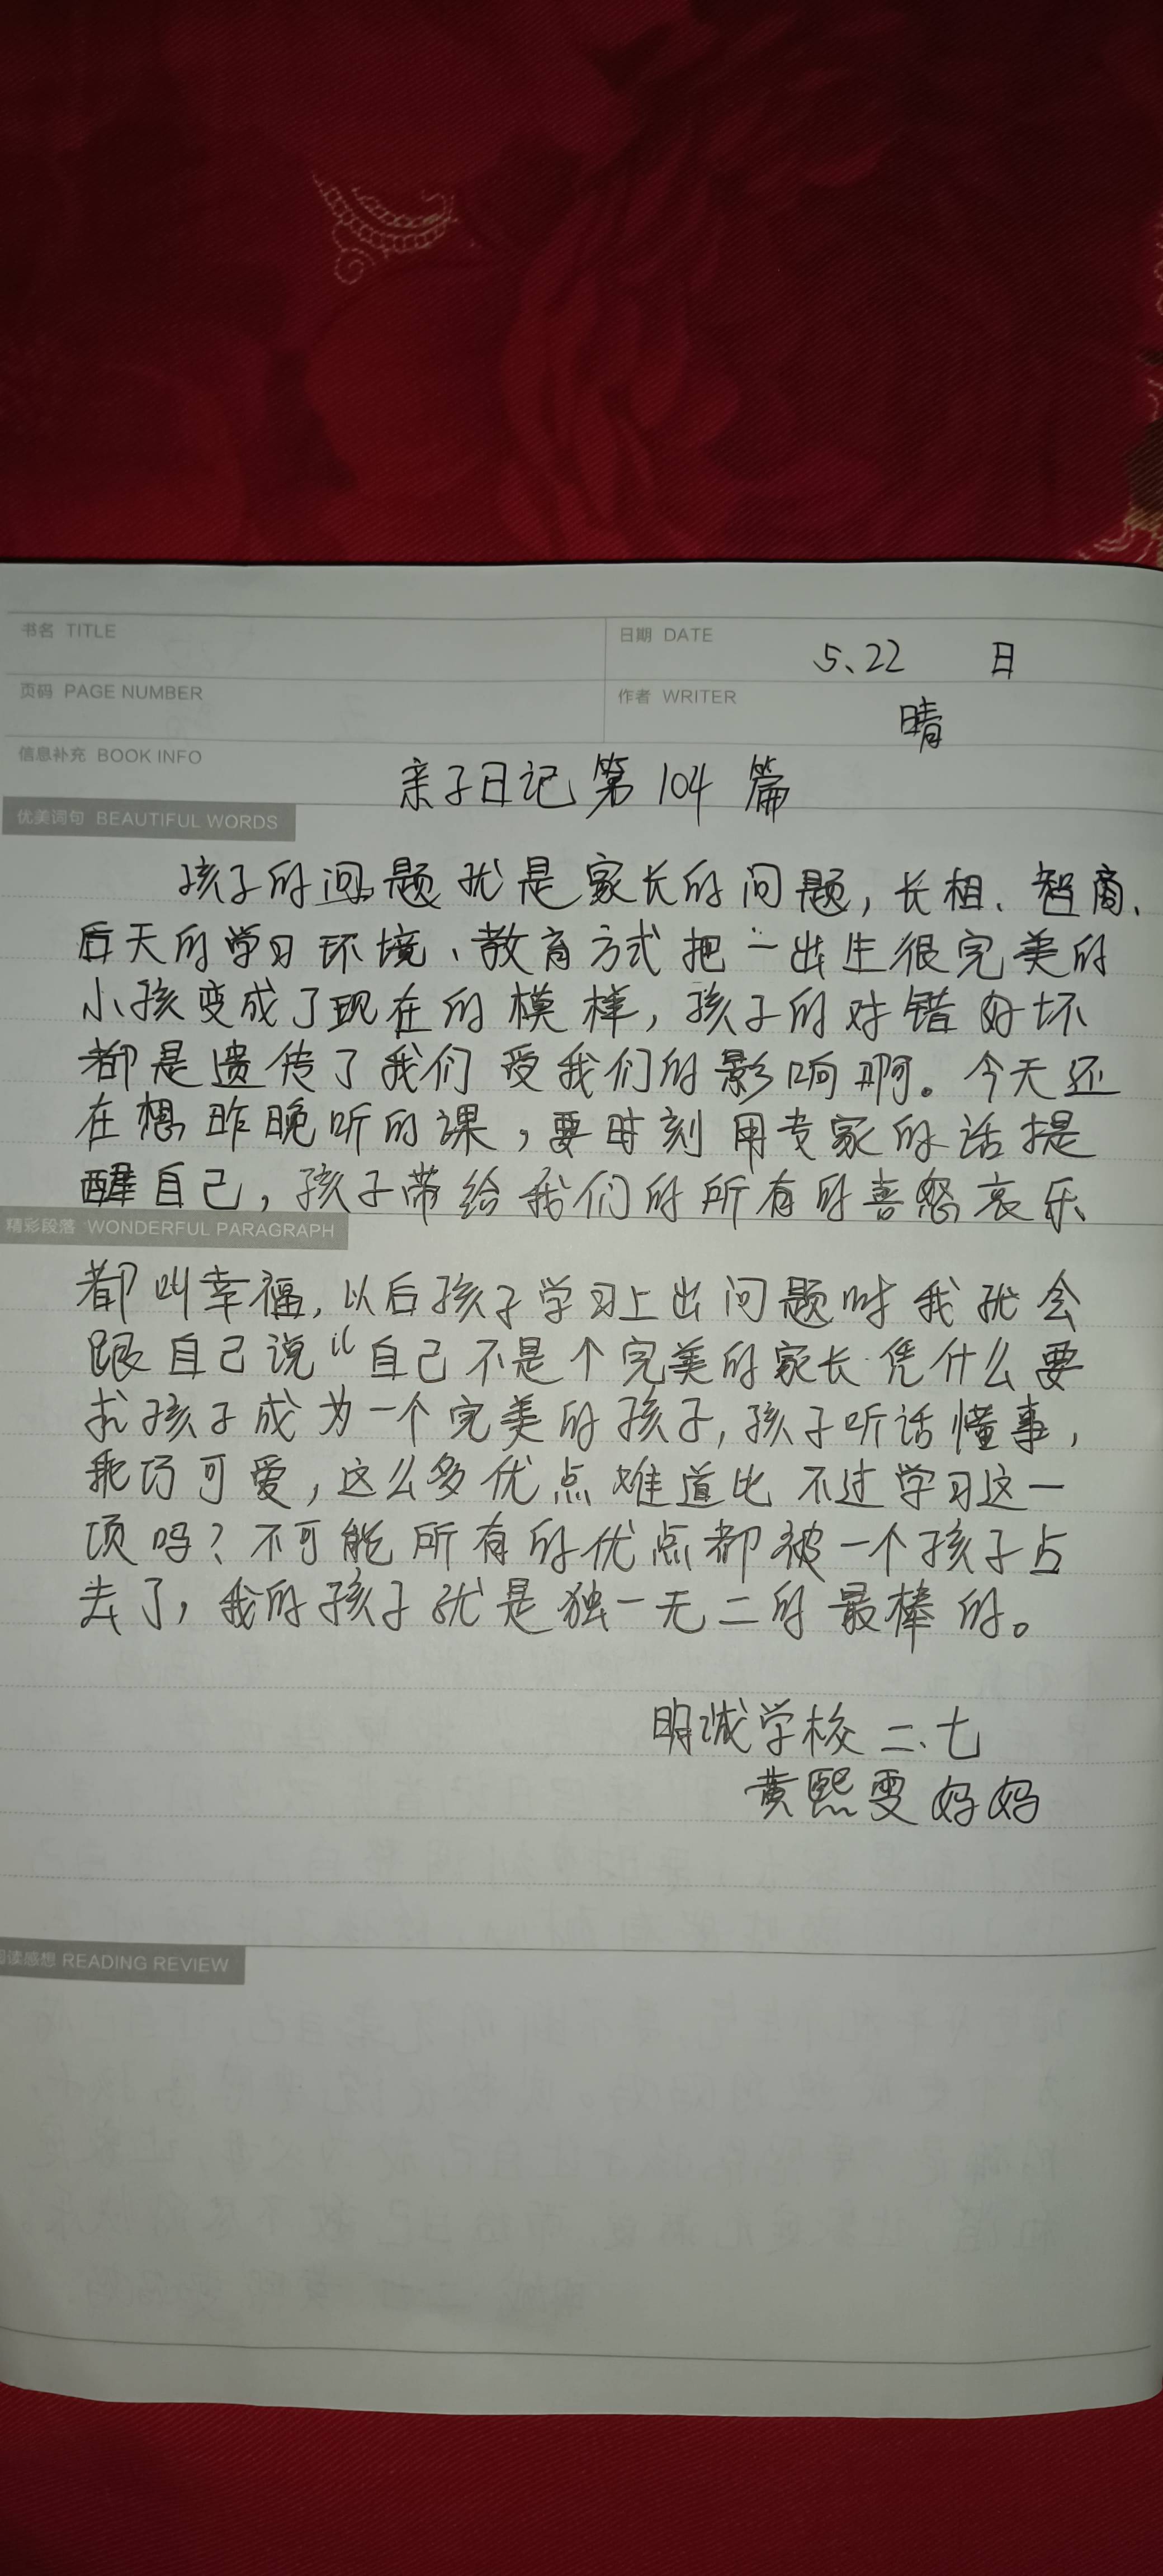 书名 TITLE
日期 DATE 5、22 日
页码 PAGE NUMBER
作者 WRITER 晴
信息补充 BOOK INFO
亲子日记第104篇
优美词句 BEAUTIFUL WORDS
孩子的问题就是家长的问题,长相、智商、
后天的学习环境、教育方式把一出生很完美的
小孩变成了现在的模样,孩子的对错好坏
都是遗传了我们受我们的影响啊。今天还
在想昨晚听的课,要时刻用专家的话提
醒自己,孩子带给我们的所有的喜怒哀乐
精彩段落 WONDERFUL PARAGRAPH
都叫幸福,以后孩子学习上出问题时我就会
跟自己说“自己不是个完美的家长凭什么要
求孩子成为一个完美的孩子,孩子听话懂事,
乖巧可爱,这么多优点难道比不过学习这一
项吗?不可能所有的优点都被一个孩子占
去了,我的孩子就是独一无二的最棒的。
明诚学校二、七
黄熙雯妈妈
阅读感想 READING REVIEW